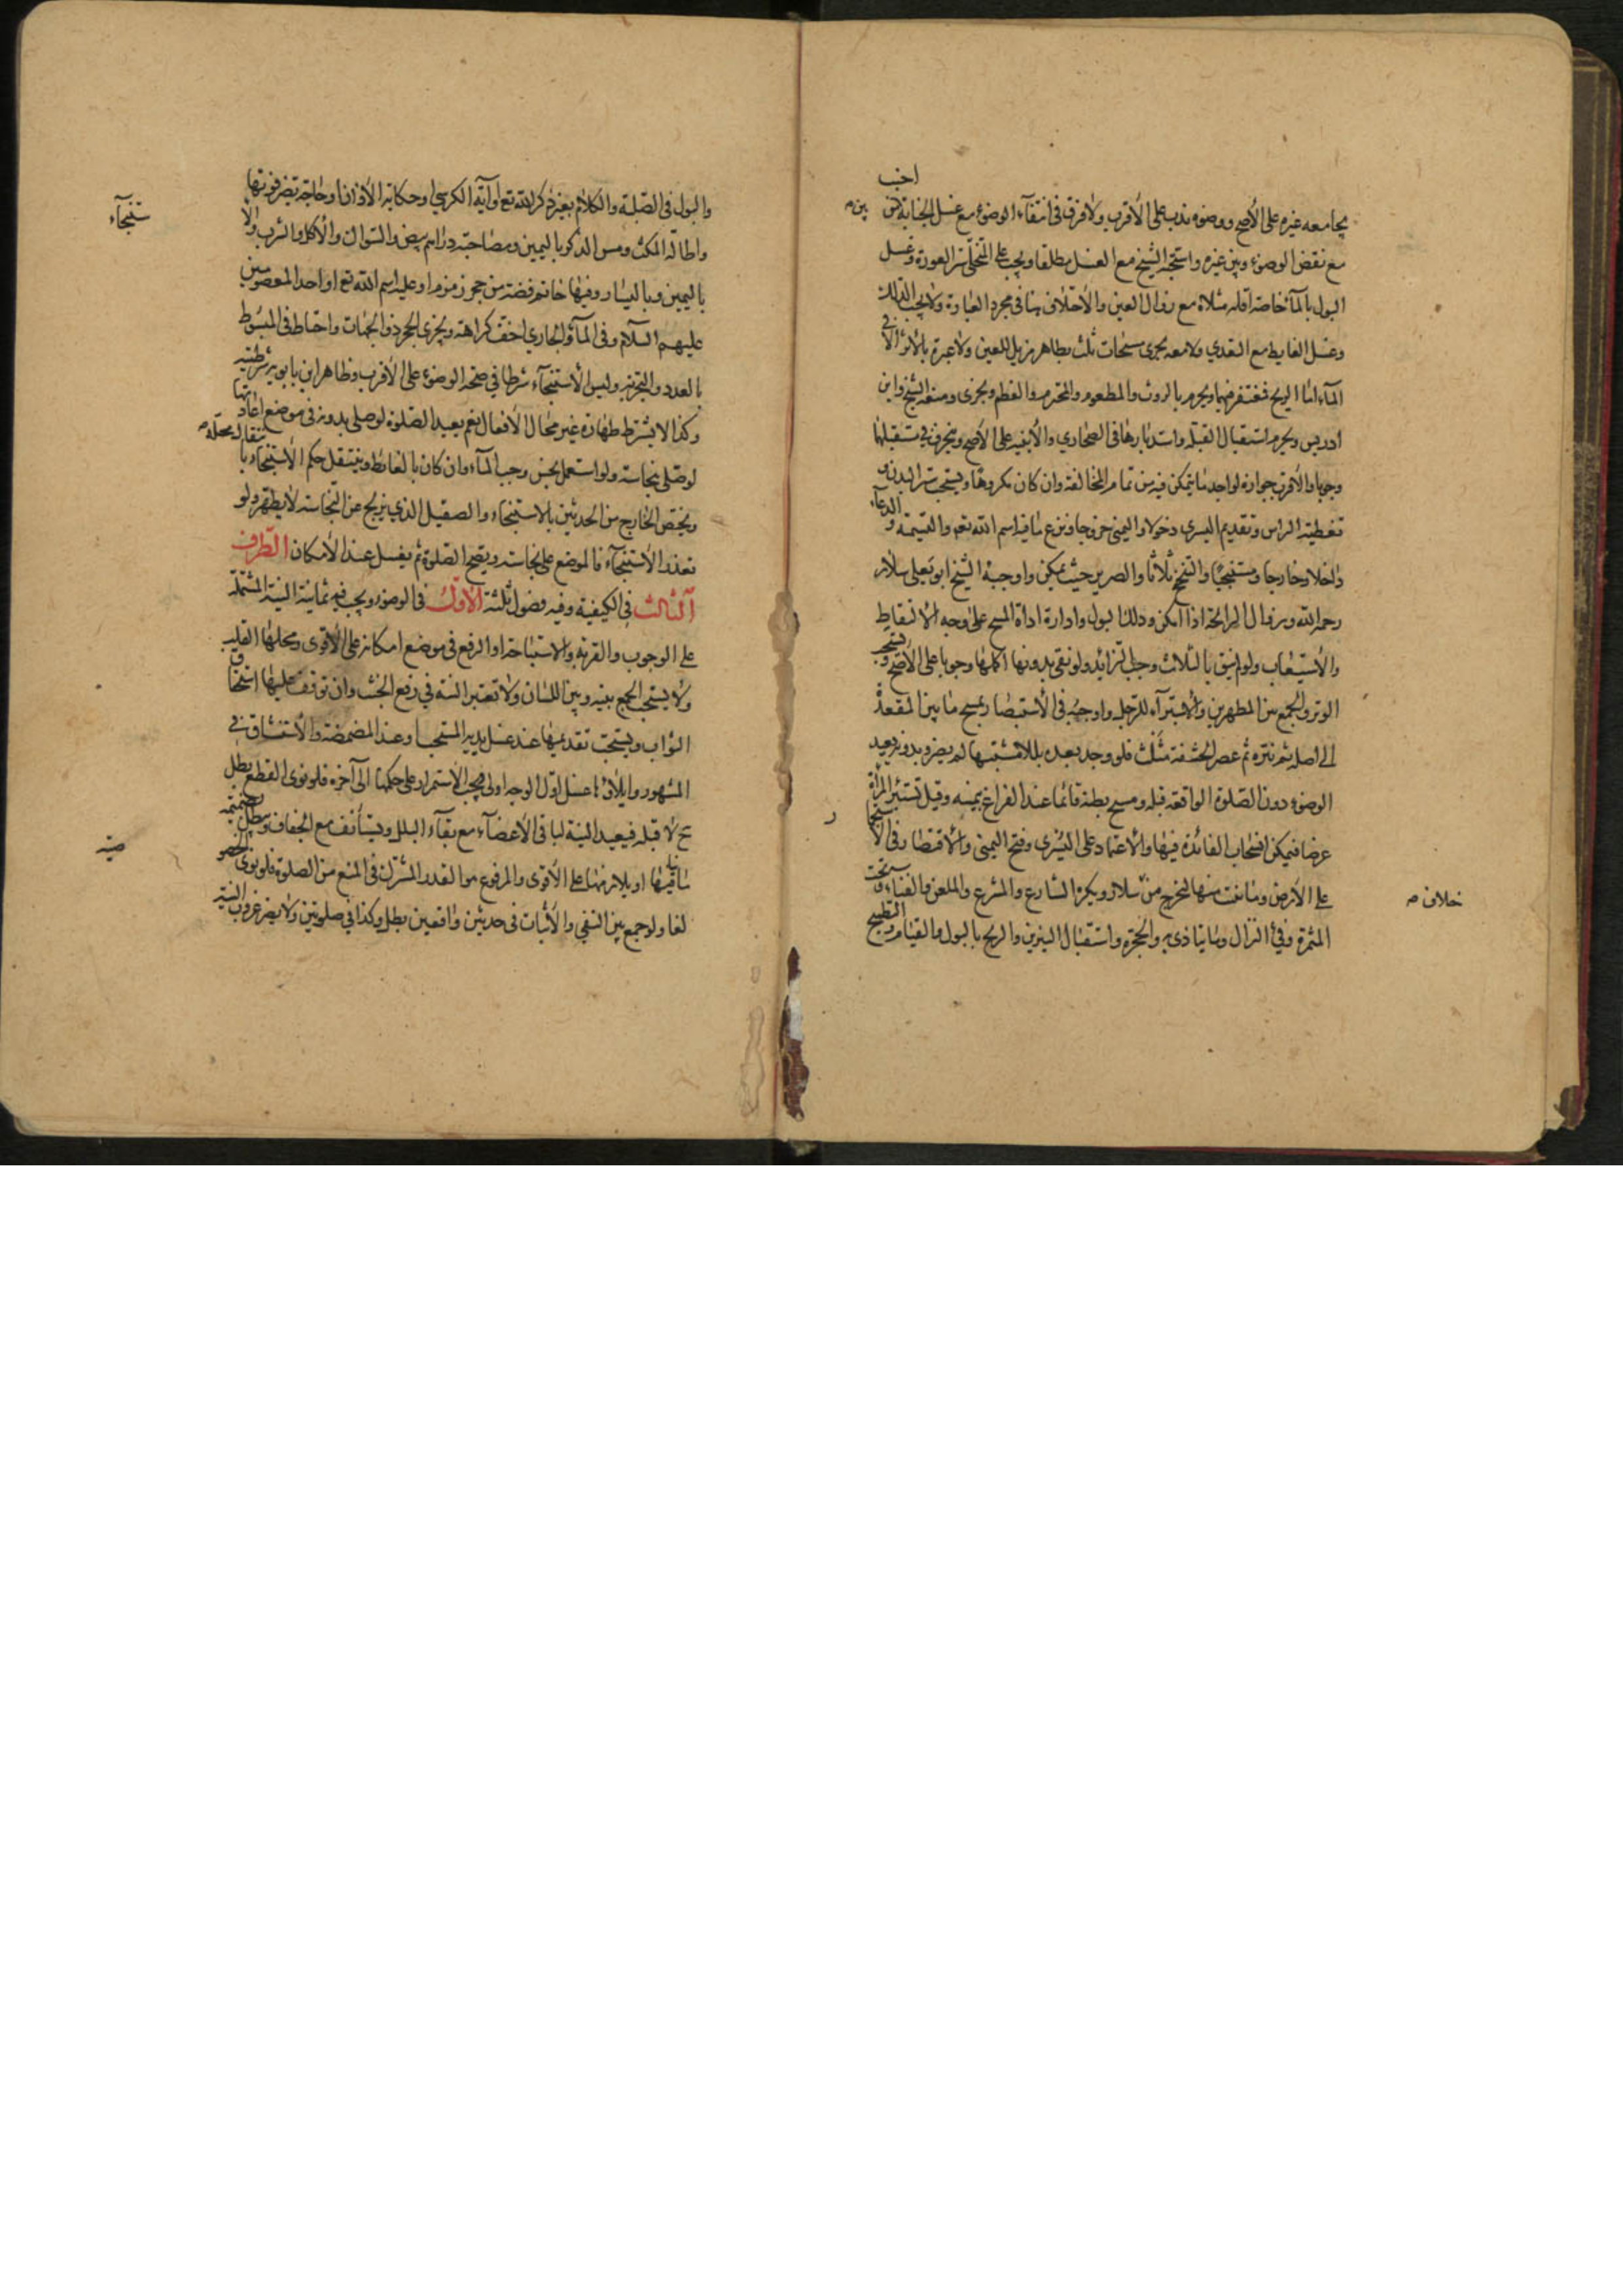 يجامعه غيره على الأصح ووضوء ندب على الأقرب ولا فرق في انتفاء الوضوء مع غسل الجنابة بين
مع نقض الوضوء وبين غيره واستحبه الشيخ مع الغسل مطلقا ويجب على المتخلي ستر العورة وغسل
البول بالماء خاصة اقله مثلاه مع زوال العين والاختلاف هنا في مجرد العبارة ولا يجب الدلك
وغسل الغايط مع التعدي ولا معه يجزى مسحات ثلث بطاهر مزيل للعين ولا عبرة بالاثر الا في
الماء اما الريح فمغتفر فيهما ويحرم بالروث والمطعوم والمحترم والعظم ويجزى ومنعه الشيخ وابن
ادريس ويحرم استقبال القبلة واستدبارها في الصحارى والأبنية على الأصح وينحرف في مستقبلها
وجوبا والأقرب جوازه لواحد ما يتمكن فيه من تمام المخالفة وان كان مكروها ويستحب ستر البدن و
تغطية الراس وتقديم اليسرى دخولا واليمنى خروجا ونزع ما فيه اسم الله تع والتسمية و الدعاء
داخلا وخارجا ومستنجيا والتنحنح ثلاثا والصبر حيث يمكن واوجبه الشيخ ابو يعلى سلار
رحمه الله وزوال الرائحة اذا امكن ودلك البول وادارة اداة المسح على وجه الالتقاط
والاستيعاب ولو لم ينق بالثلاث وجب الزائد ولو نقي بدونها اكملها وجوبا على الأصح ويستحب
الوتر والجمع بين المطهرين والاستبراء للرجل واوجبه في الاستبصار يمسح ما بين المقعدة
الى اصله ثم نتره ثم عصر الحشفة مثلث فلو وجد بعده بللا مشتبها لم يضر وبدونه يعيد
الوضوء دون الصلوة الواقعة قبله ومسح بطنه قائما عند الفراغ بيمينه وقيل تستبرئ المراة
عرضا فيمكن انسحاب الفائدة فيها والاعتماد على اليسرى وفتح اليمنى والاقتصار في الاستنجا
على الأرض وما نبت منها لتخرج من سلار ويكره الشارع والمشرع والملعن والفناء وتحت
خلاف
المثمرة وفيء النزال وما يتاذى به والحجرة واستقبال النيرين والريح بالبول والقيام والتطميح
والبول في الصلبة والكلام بغير ذكر الله تع او آية الكرسي او حكاية الأذان او حاجة يضر فوتها
واطالة المكث ومس الذكر باليمين ومصاحبة دراهم بيض والسواك والأكل والشرب والا
ستنجاء
باليمين وباليسار وفيها خاتم فضة من حجر زمزم او عليه اسم الله تع او احد المعصومين
عليهم السلام وفي الماء والجاري اخف كراهة ويجزى الحجر ذو الجهات واحتاط في المبسوط
بالعدد والتجزيه وليس الاستنجاء شرطا في صحة الوضوء على الأقرب وظاهر ابن بابويه شرطيته
وكذا لا يشترط طهارة غير محال الأفعال نعم يعيد الصلوة لو صلى بدونه في موضع اعادتها
لو صلى بنجاسة ولو استعمل نجس وجب الماء وان كان بالغايط وينتقل حكم الاستنجاء بانتقال محله
ويختص الخارج من الحدثين بالاستنجاء والصقيل الذي يزيح عن النجاسة لا يطهر ولو
تعذر الاستنجاء فالموضع على نجاسته ويصح الصلوة ثم يغسل عند الأمكان الطرف
الثالث في الكيفية وفيه فصول ثلثة الأول في الوضوء ويجب فيه ثمانية النية المشتملة
على الوجوب والقربة والاستباحة او الرفع في موضع امكانه على الأقوى ومحلها القلب
ولا يستحب الجمع بينه وبين اللسان ولا تعتبر النية في رفع الخبث وان توقف عليها استحقاق
الثواب ويستحب تقديمها عند غسل يديه المستحبا وعند المضمضة والاستنشاق في
المشهور وايلاؤها غسل اول الوجه اولى ويجب الاستمرار على حكمها الى آخره فلو نوى القطع بطل
ح لا قبله فيعيد النية لباقي الأعضاء مع بقاء البلل ويستأنف مع الجفاف ويبطل بضميمة
ما ينافيها او يلازمها على الأقوى والمرفوع هو القدر المشترك في المنع من الصلوة فلو نوى الخصو
صية
لغا ولو جمع بين النفي والأثبات في حدثين واقعين بطل وكذا في صلوتين ولا يضر عزوب النية